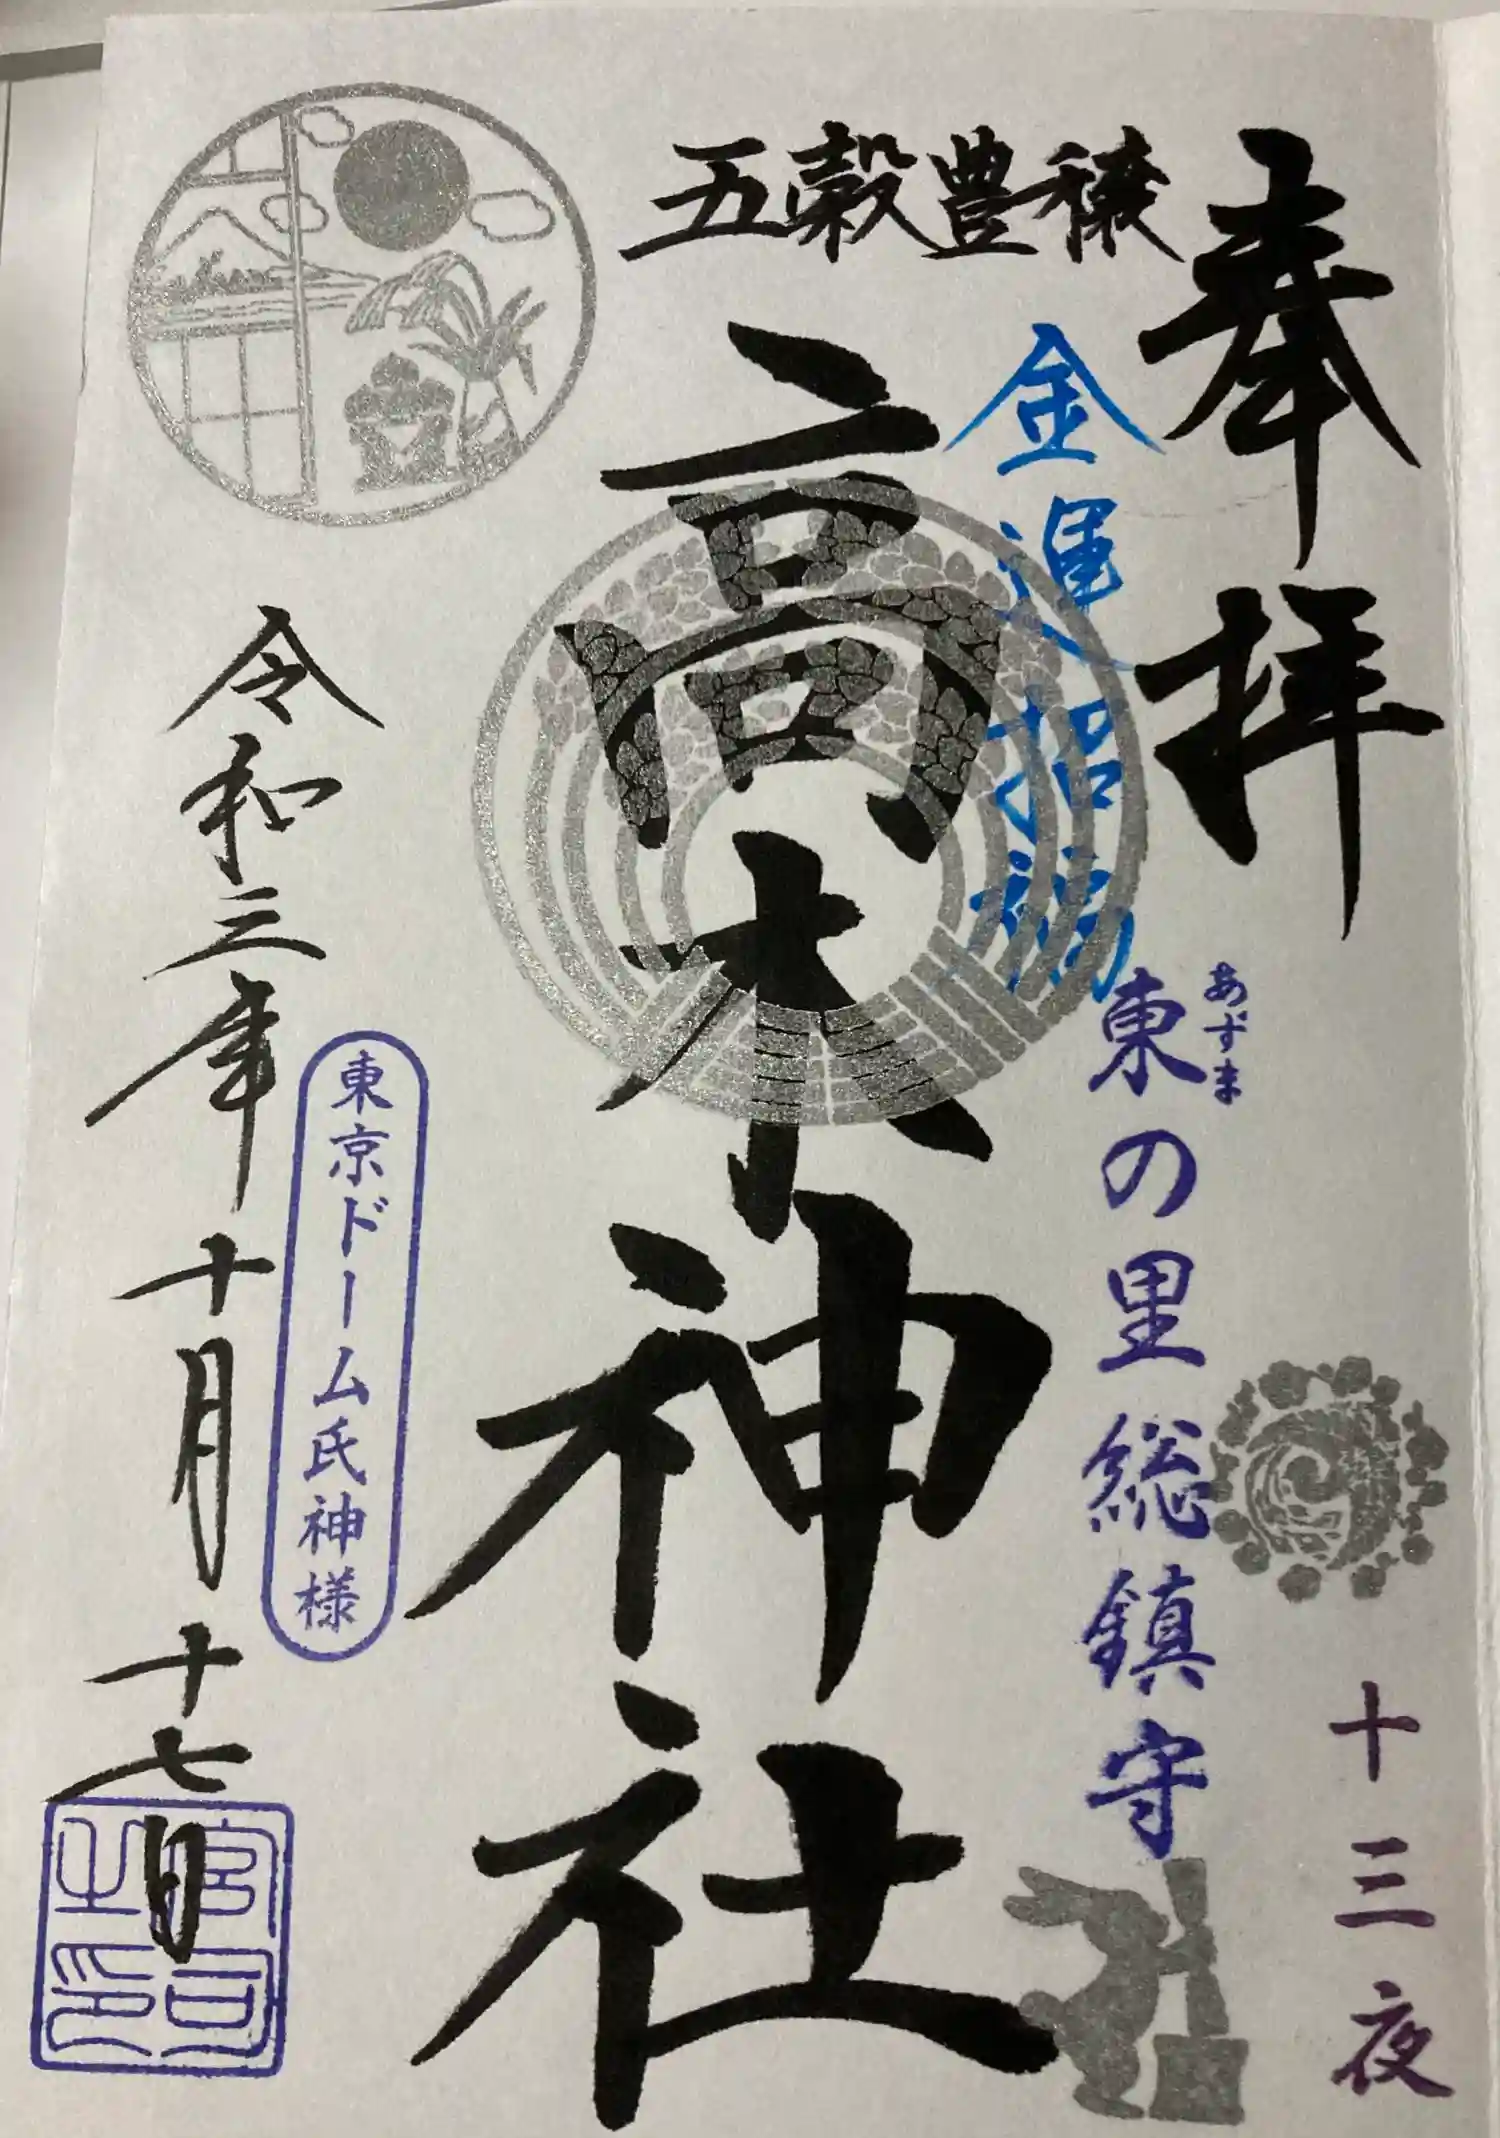 奉拝
十三夜
あずま
東の里総鎮守
金運招福
五穀豊穣
高木神社
東京ドーム氏神様
令和三年十月十七日
宮司
之印